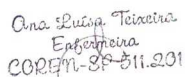 Ana Luísa Teixeira
Enfermeira
COREN-SP 511.291